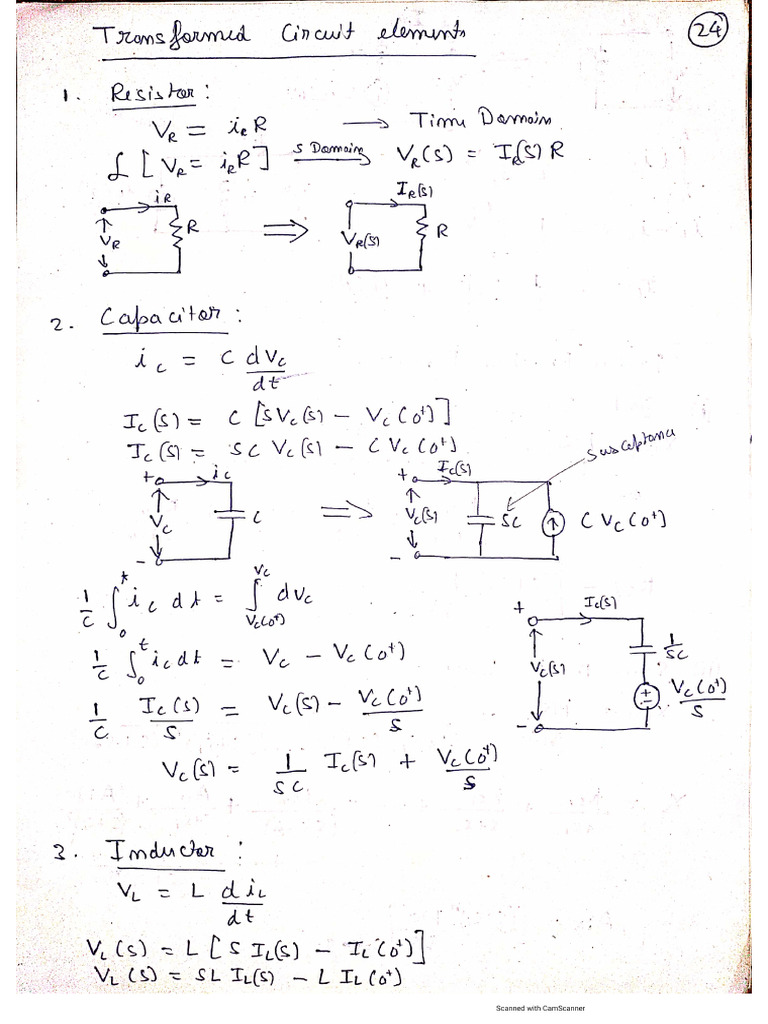 Transformed Circuit elements
24
1. Resistor :
V_R = i_R R → Time Domain
ℒ [ V_R = i_R R ] s Domain → V_R(s) = I_R(s) R
i_R
I_R(s)
V_R
R
⇒
V_R(s)
R
2. Capacitor :
i_c = C dV_c/dt
I_c(s) = C [ S V_c(s) − V_c(0⁺) ]
I_c(s) = SC V_c(s) − C V_c(0⁺)
Susceptance
+ i_c
+ I_c(s)
V_c
C
⇒
V_c(s)
SC
C V_c(0⁺)
-
-
1/C ∫₀ᵗ i_c dt = ∫_{V_c(0⁺)}^{V_c} dV_c
1/C ∫₀ᵗ i_c dt = V_c − V_c(0⁺)
1/C I_c(s)/S = V_c(s) − V_c(0⁺)/S
V_c(s) = 1/SC I_c(s) + V_c(0⁺)/S
+ I_c(s)
1/SC
V_c(s)
± V_c(0⁺)/S
-
3. Inductor :
V_L = L di_L/dt
V_L(s) = L [ S I_L(s) − I_L(0⁺) ]
V_L(s) = SL I_L(s) − L I_L(0⁺)
Scanned with CamScanner